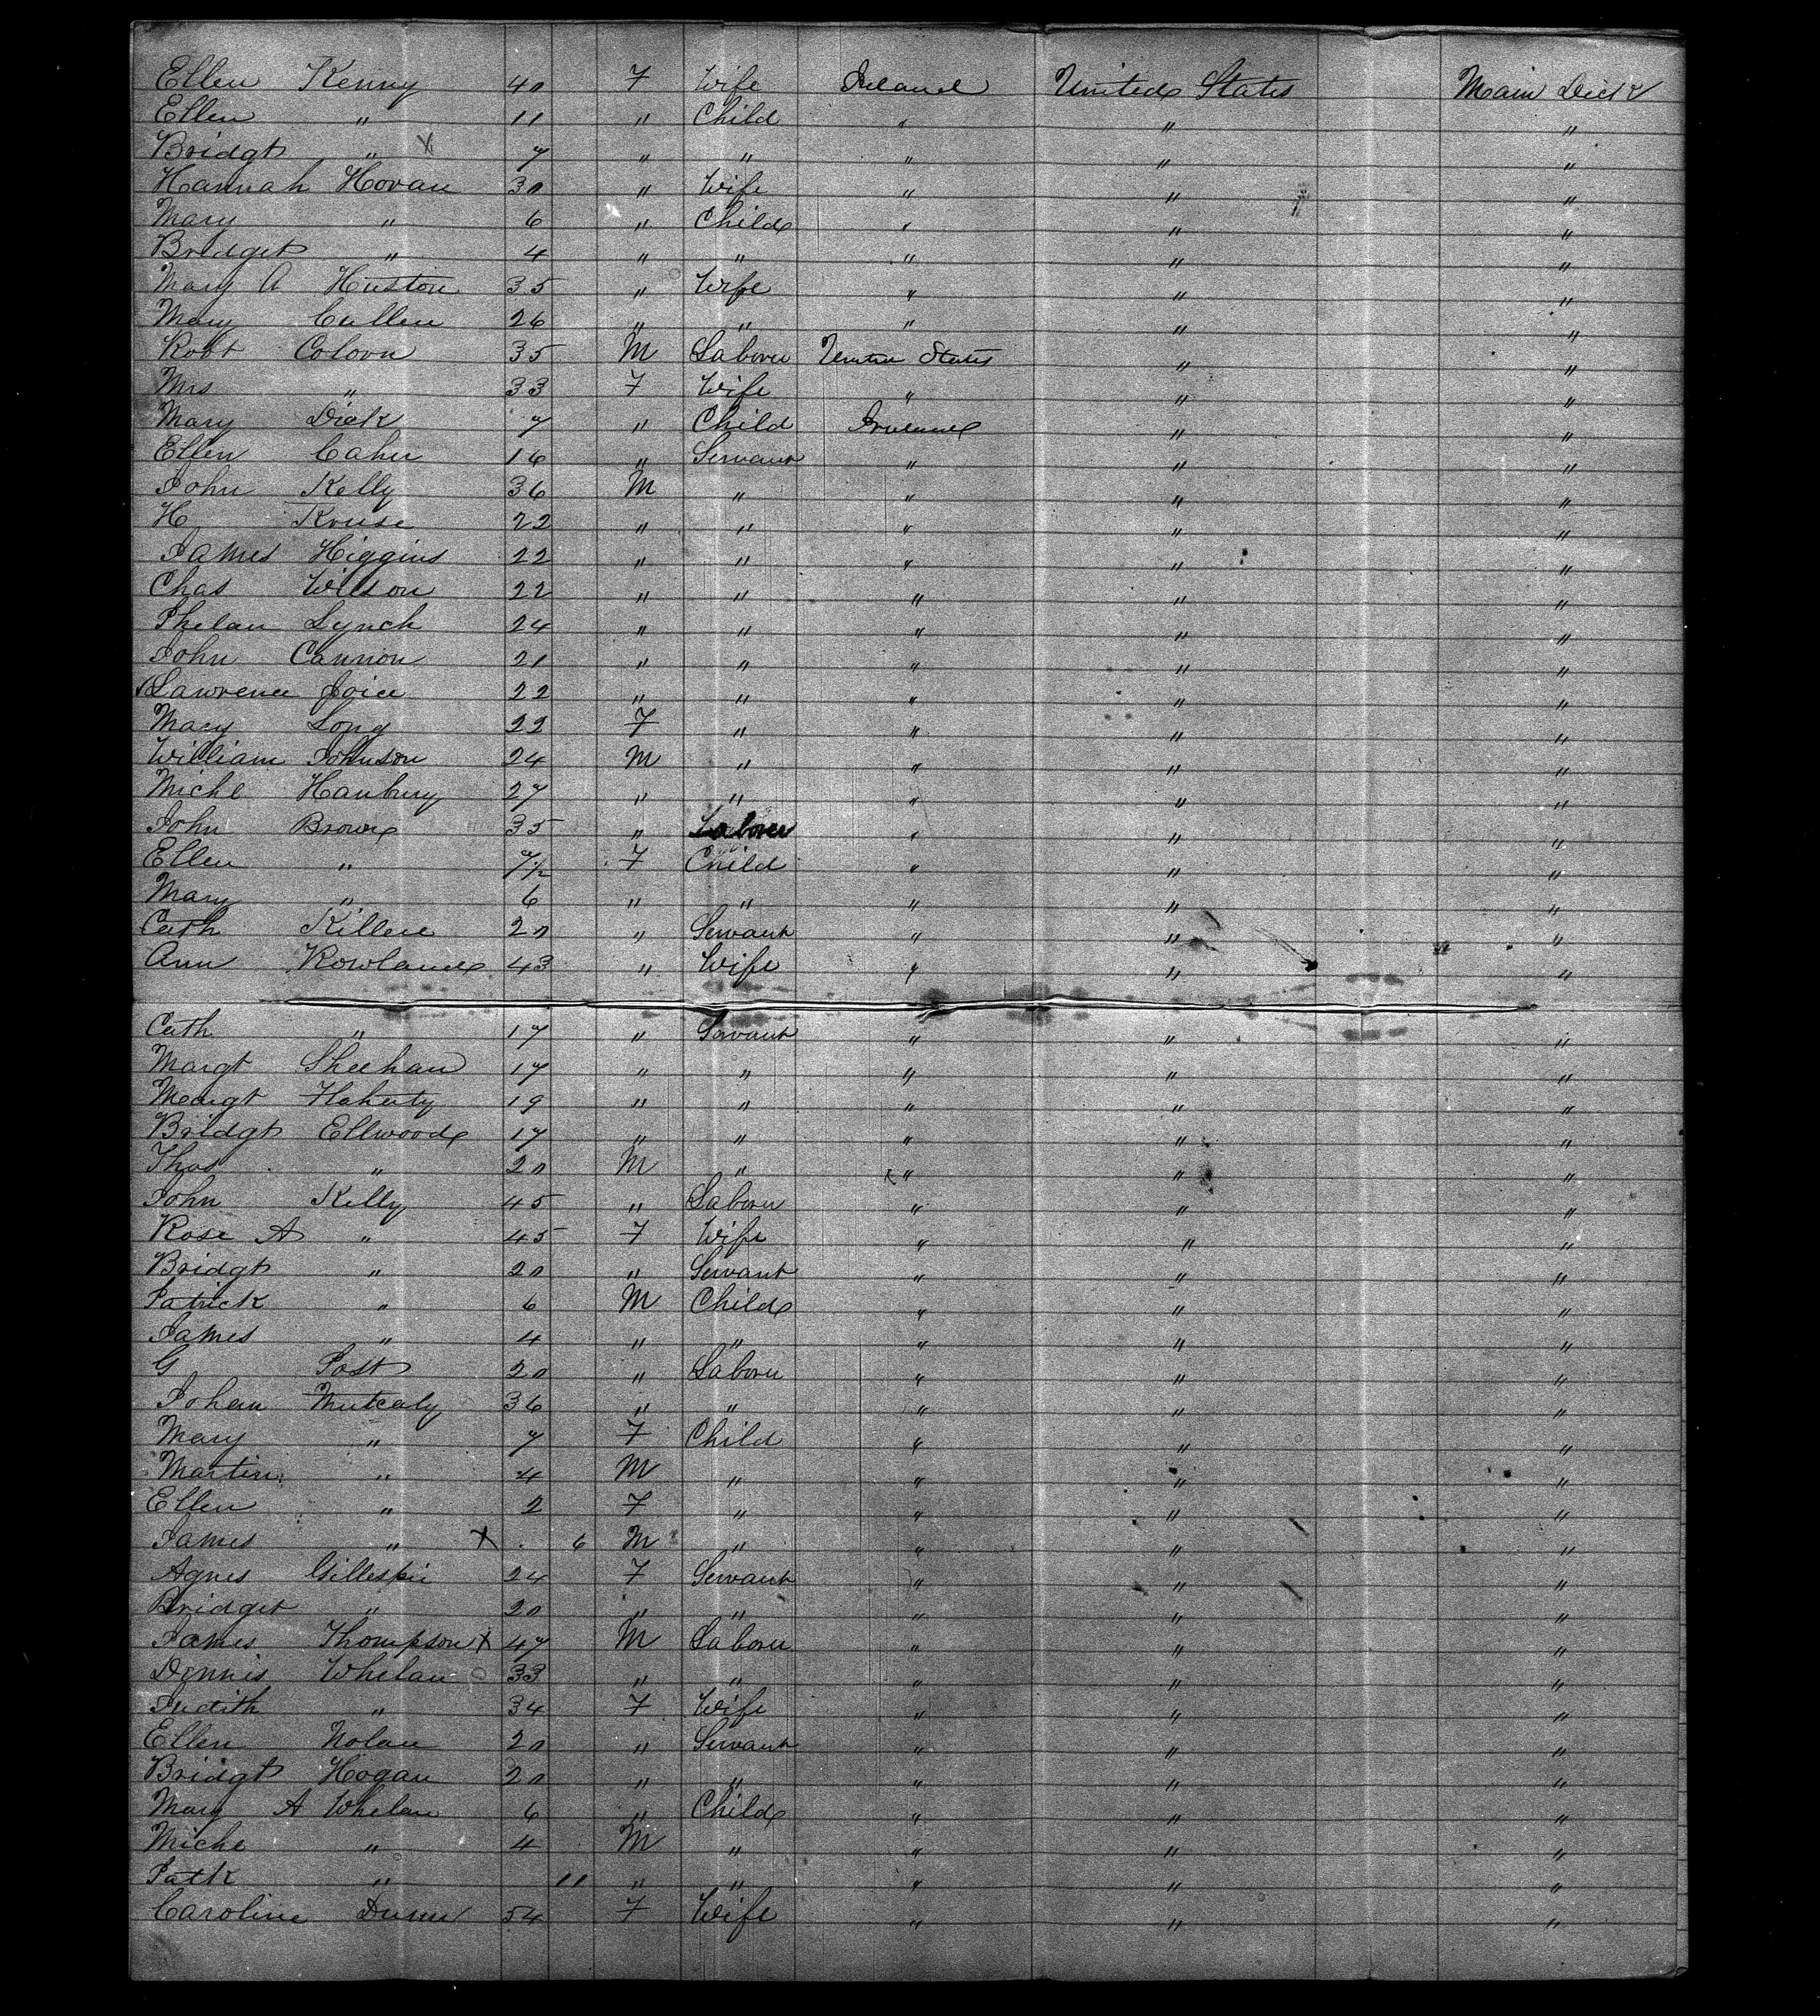 Ellen Kenny 40 F Wife Ireland United States Main Deck
Ellen " 11 " Child " " "
Bridgt " X 7 " " " " "
Hannah Horan 30 " Wife " " "
Mary " 6 " Child " " "
Bridget " 4 " " " " "
Mary A Huston 35 " Wife " " "
Mary Cullen 26 " " " " "
Robt Colovn 35 M Laborer United States " "
Mrs " 33 F Wife " " "
Mary Dick 7 " Child Ireland " "
Ellen Caher 16 " Servant " " "
John Kelly 36 M " " " "
H Kruse 22 " " " " "
James Higgins 22 " " " " "
Chas Wilson 22 " " " " "
Phelan Lynch 24 " " " " "
John Cannon 21 " " " " "
Lawrence Joice 22 " " " " "
Mary Long 22 F " " " "
William Johnson 24 M " " " "
Michl Hanbury 27 " " " " "
John Brown 35 " Laborer " " "
Ellen " 7½ F Child " " "
Mary " 6 " " " " "
Cath Killen 20 " Servant " " "
Ann Rowland 43 " Wife " " "
Cath " 17 " Servant " " "
Margt Sheehan 17 " " " " "
Margt Flaherty 19 " " " " "
Bridgt Ellwood 17 " " " " "
Thos " 20 M " " " "
John Kelly 45 " Laborer " " "
Rose A " 45 F Wife " " "
Bridgt " 20 " Servant " " "
Patrick " 6 M Child " " "
James " 4 " " " " "
G Post 20 " Laborer " " "
Johan Mutcaly 36 " " " " "
Mary " 7 F Child " " "
Martin " 4 M " " " "
Ellen " 2 F " " " "
James " X 6 M " " " "
Agnes Gillespie 24 F Servant " " "
Bridget " 20 " " " " "
James Thompson X 47 M Laborer " " "
Dennis Whelan 33 " " " " "
Judith " 34 F Wife " " "
Ellen Nolan 20 " Servant " " "
Bridgt Hogan 20 " " " " "
Mary A Whelan 6 " Child " " "
Michl " 4 M " " " "
Patk " 11 " " " " "
Caroline Dunn 54 F Wife " " "